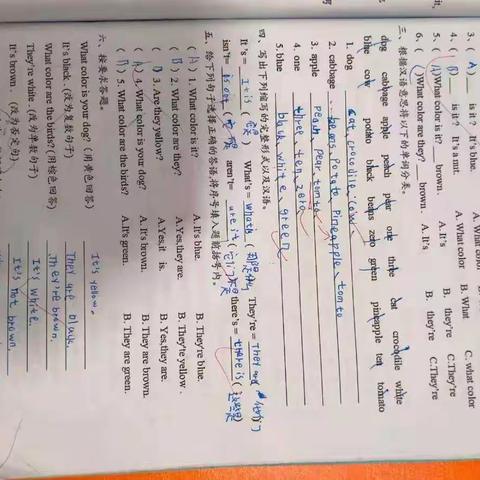 3. (A) ___ is it? It's blue. A. What color B. What C. what color
4. (B) ___ is it? It's a nut. A. What color B. What
5. (A)What color is it? ___ brown. A. It's B. they're C.They're
6. ( )What color are they? ___ brown. A. It's B. they're C.They're
三、根据汉语意思将以下的单词分类。
dog cabbage apple peach pear one three cat crocodile white
blue cow potato black beans zero green pineapple ten tomato
1. dog cat crocodile cow
2. cabbage beans. Potato. Pineapple、tomto
3. apple peach pear tomto
4. one three、ten、zero
5. blue black、white、green
四、写出下列缩写的完整形式以及汉语。
It's = It is What's = whatis They're = They are
isn't= is not aren't= are it there's = there is
五、给下列句子选择正确的答语,将序号填入题前括号内。
(A) 1. What color is it? A.It's blue. B. They're blue.
(B) 2. What color are they? A.Yes,they are. B. They're yellow.
(B) 3. Are they yellow? A.Yes,it is. B. Yes,they are.
(A) 4. What color is your dog? A.It's brown. B. They are brown.
(B) 5. What color are the birds? A.It's green. B. They are green.
六、按要求答题。
What color is your dog? (用黄色回答) It's yellow.
It's black. (改为复数句子) They are black.
What color are the birds? (用棕色回答) They're brown.
They're white. (改为单数句子) It's white.
It's brown. (改为否定句) It's not brown.